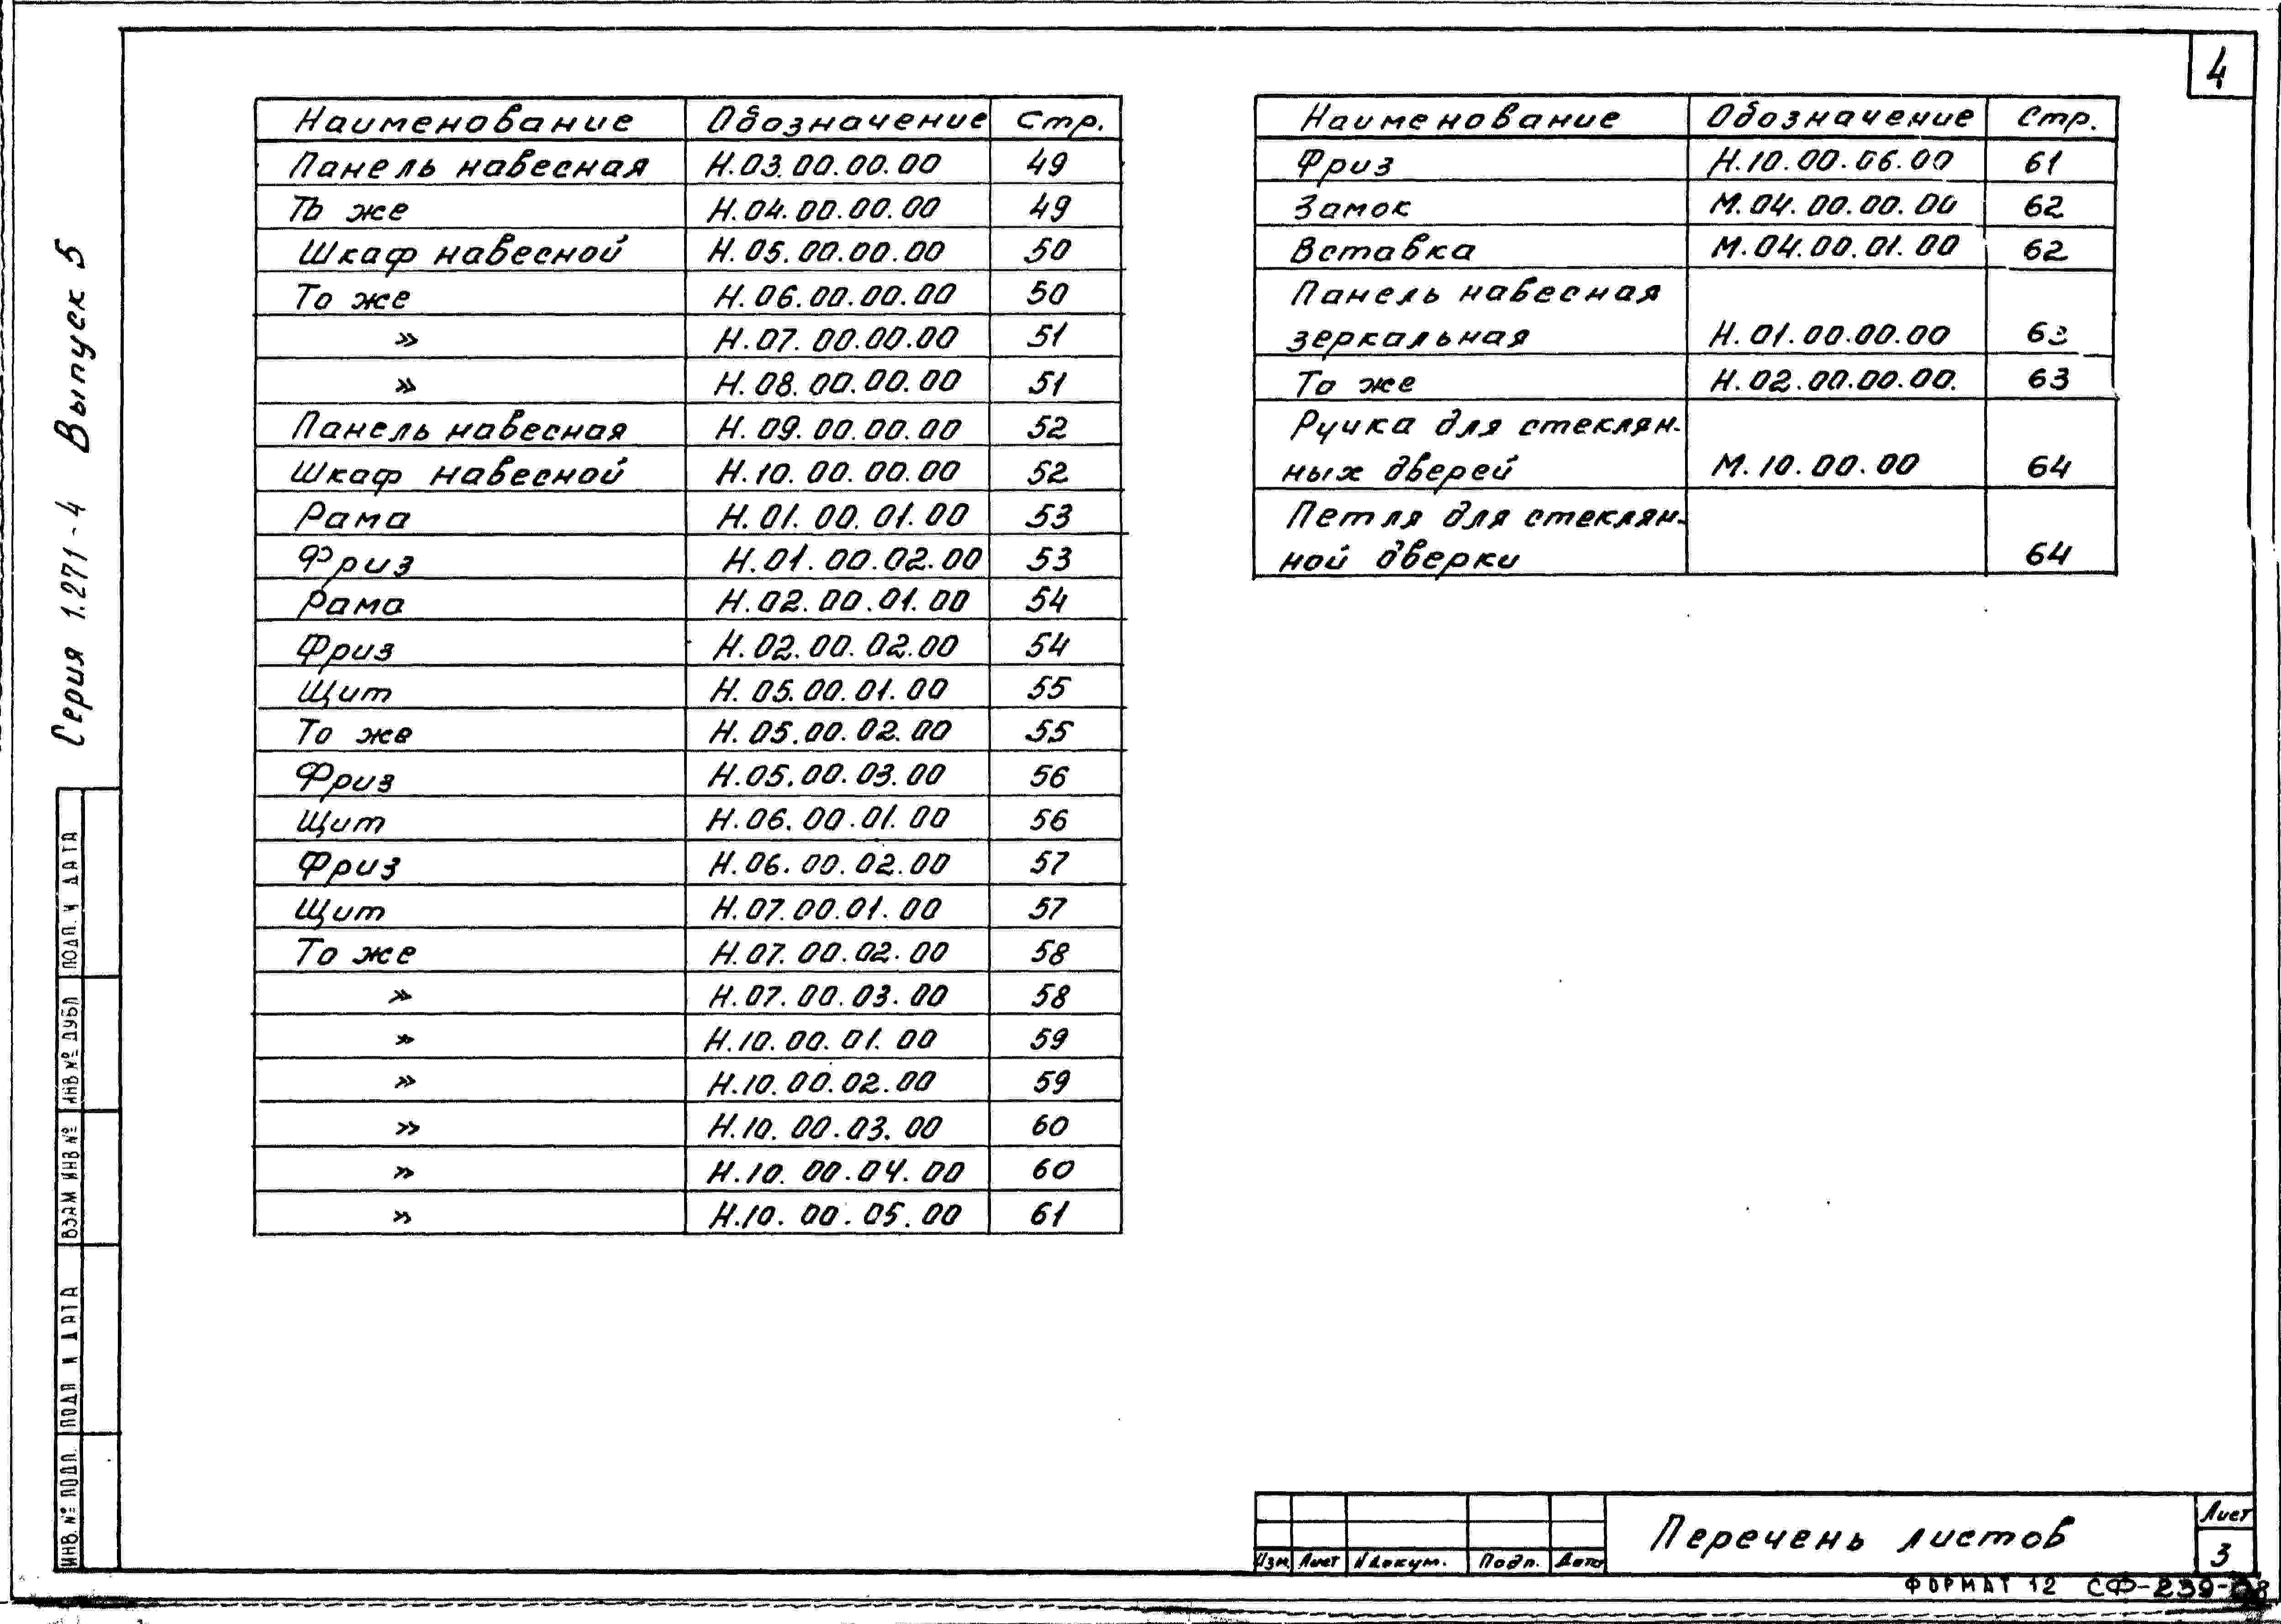 4
Серия 1.271-4 Выпуск 5
Наименование Обозначение Стр.
Панель навесная Н.03.00.00.00 49
То же Н.04.00.00.00 49
Шкаф навесной Н.05.00.00.00 50
То же Н.06.00.00.00 50
» Н.07.00.00.00 51
» Н.08.00.00.00 51
Панель навесная Н.09.00.00.00 52
Шкаф навесной Н.10.00.00.00 52
Рама Н.01.00.01.00 53
Фриз Н.01.00.02.00 53
Рама Н.02.00.01.00 54
Фриз Н.02.00.02.00 54
Щит Н.05.00.01.00 55
То же Н.05.00.02.00 55
Фриз Н.05.00.03.00 56
Щит Н.06.00.01.00 56
Фриз Н.06.00.02.00 57
Щит Н.07.00.01.00 57
То же Н.07.00.02.00 58
» Н.07.00.03.00 58
» Н.10.00.01.00 59
» Н.10.00.02.00 59
» Н.10.00.03.00 60
» Н.10.00.04.00 60
» Н.10.00.05.00 61
Наименование Обозначение Стр.
Фриз Н.10.00.06.00 61
Замок М.04.00.00.00 62
Вставка М.04.00.01.00 62
Панель навесная
зеркальная Н.01.00.00.00 63
То же Н.02.00.00.00. 63
Ручка для стеклян-
ных дверей М.10.00.00 64
Петля для стеклян-
ной дверки 64
ИНВ.№ ПОДЛ. ПОДП И ДАТА ВЗАМ ИНВ № ИНВ № ДУБЛ ПОДП. И ДАТА
Изм. Лист № докум. Подп. Дата
Перечень листов
Лист
3
ФОРМАТ 12 СФ-239-08